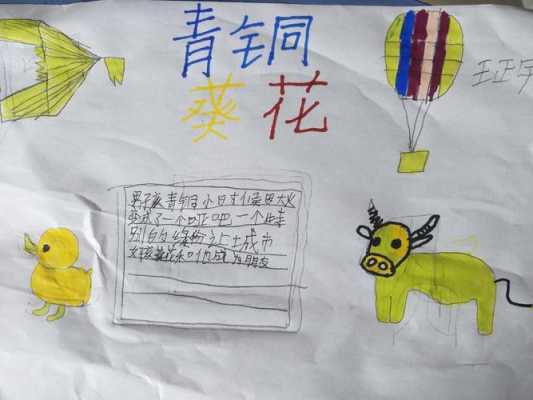 青铜
葵花
王正宇
男孩青铜小时候因大火
变成了一个哑吧一个特
别的缘份让土城市
女孩葵花和他成为朋友